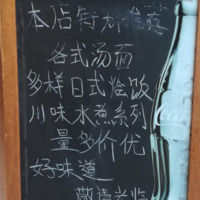 本店特别推荐
各式汤面
多样日式烩饭
川味水煮系列
量多价优
好味道
敬请光临
Coca